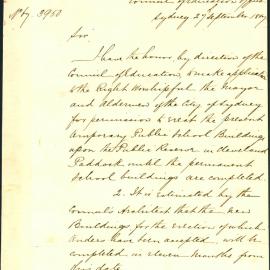 No 67. 3950
Council of Education Office
Sydney 27 September 18
Sir
I have the honor, by direction of the
Council of Education, to make application
to the Right Worshipful the Mayor
and Aldermen of the City of Sydney
for permission to erect the present
temporary Public School Buildings
upon the Public Reserve in Cleveland
Paddock until the permanent
School buildings are completed.
2. It is estimated by the
Council's Architect that the new
Buildings for the erection of which
tenders have been accepted will be
completed in eleven months from
this date